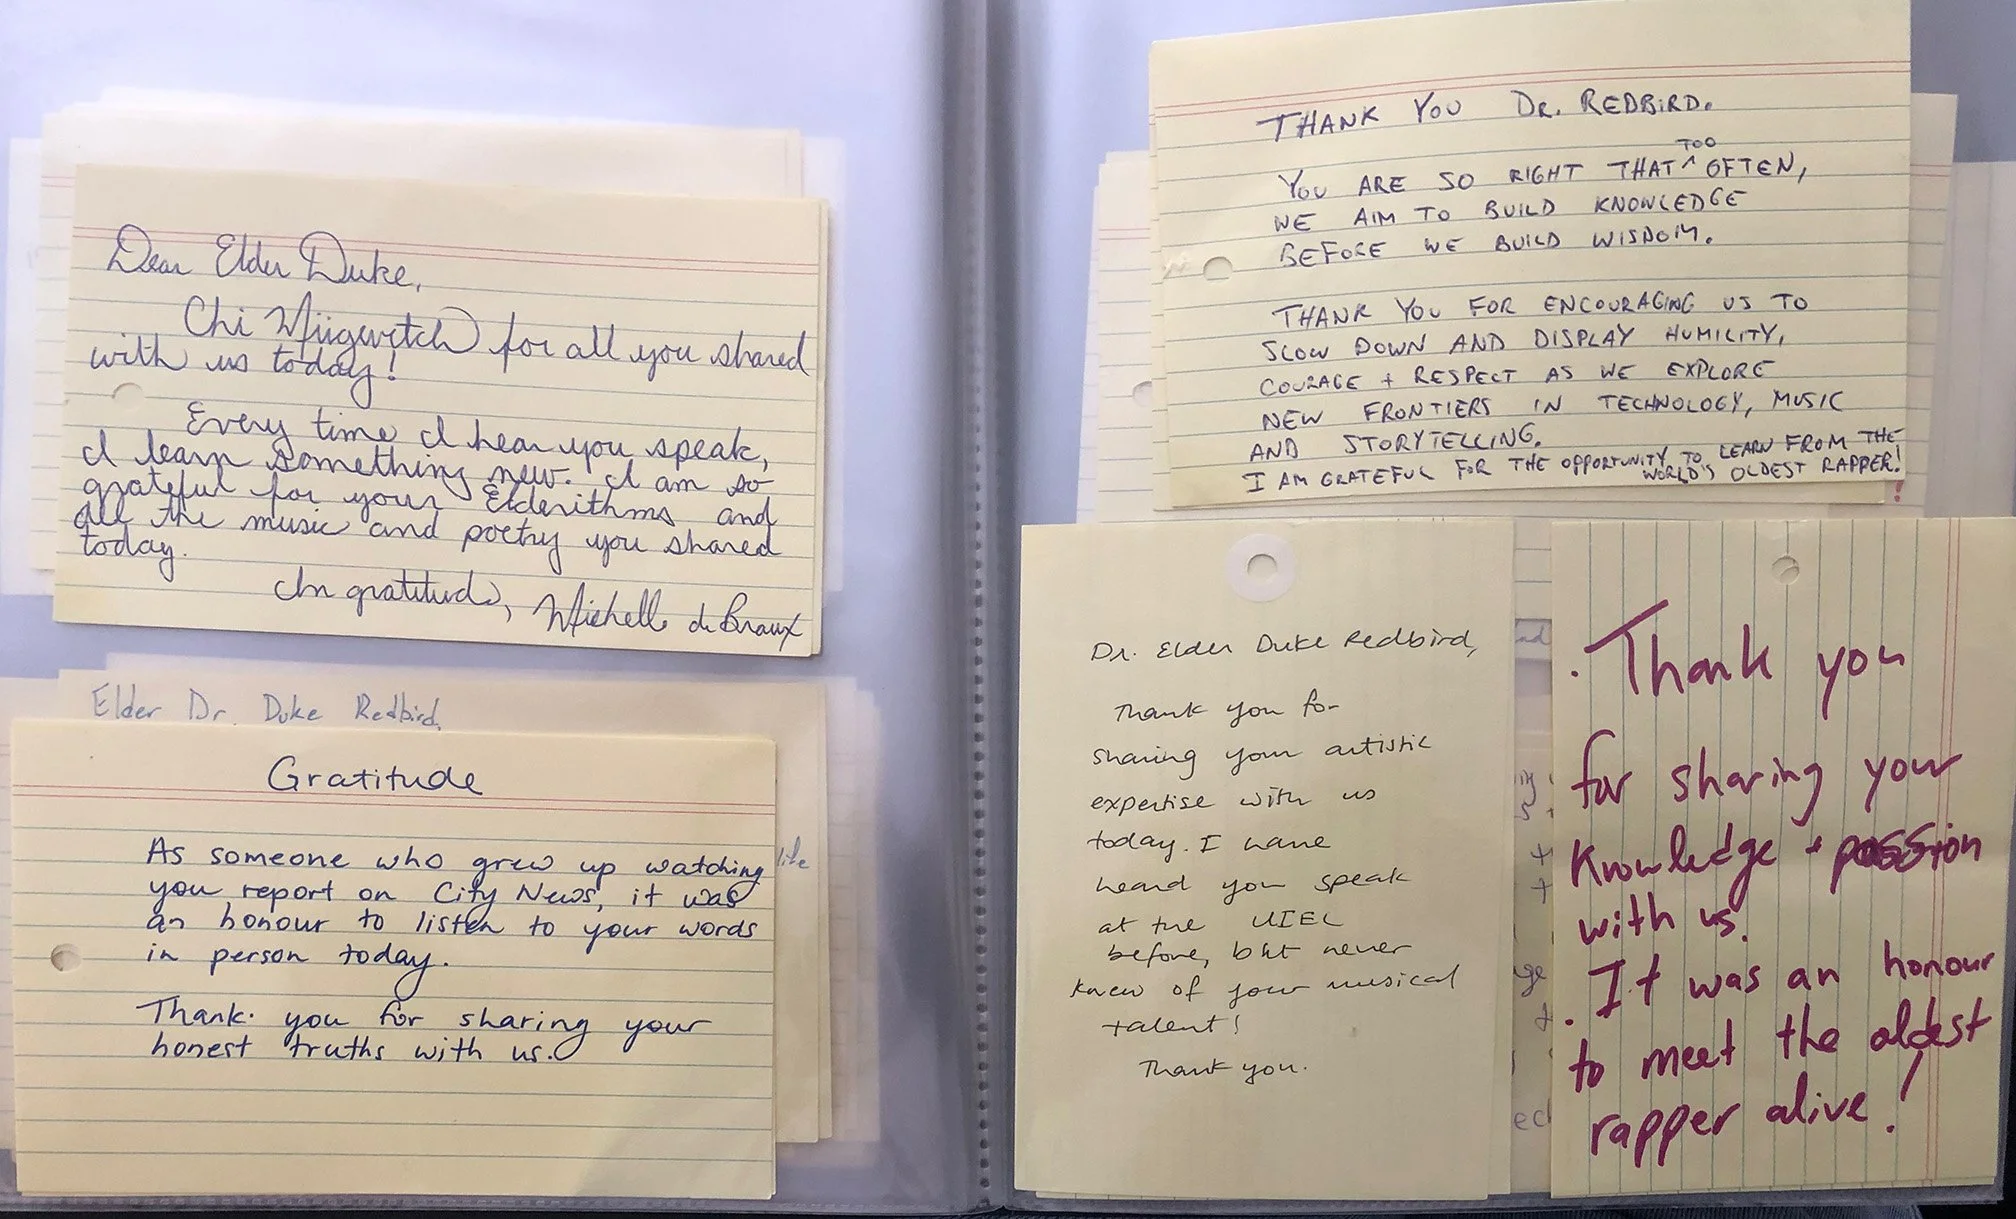 Dear Elder Duke,
Chi Miigwetch for all you shared
with us today!
Every time I hear you speak,
I learn something new. I am so
grateful for your Elderithms and
all the music and poetry you shared
today.
In gratitude, Michelle de Braux
Elder Dr. Duke Redbird,
Gratitude
As someone who grew up watching
you report on City News, it was
an honour to listen to your words
in person today.
Thank you for sharing your
honest truths with us.
like
THANK YOU DR. REDBIRD.
YOU ARE SO RIGHT THAT ^TOO OFTEN,
WE AIM TO BUILD KNOWLEDGE
BEFORE WE BUILD WISDOM.
THANK YOU FOR ENCOURAGING US TO
SLOW DOWN AND DISPLAY HUMILITY,
COURAGE + RESPECT AS WE EXPLORE
NEW FRONTIERS IN TECHNOLOGY, MUSIC
AND STORYTELLING.
I AM GRATEFUL FOR THE OPPORTUNITY TO LEARN FROM THE
WORLD'S OLDEST RAPPER!
Dr. Elder Duke Redbird,
Thank you for
sharing your artistic
expertise with us
today. I have
heard you speak
at the UIEL
before, but never
knew of your musical
talent!
Thank you.
. Thank you
for sharing your
knowledge + passion
with us.
. It was an honour
to meet the oldest
rapper alive!